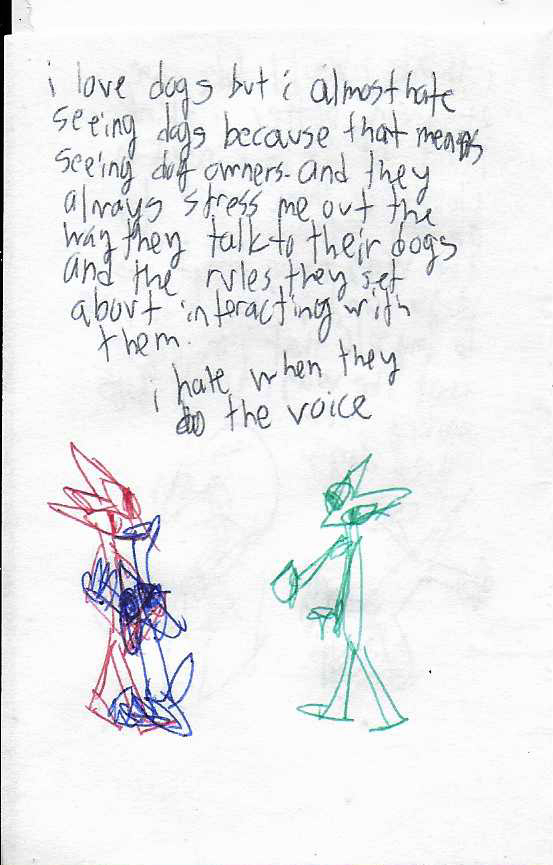 i love dogs but i almost hate
seeing dogs because that means
seeing dog owners. and they
always stress me out the
way they talk to their dogs
and the rules they set
about interacting with
them.
i hate when they
do the voice